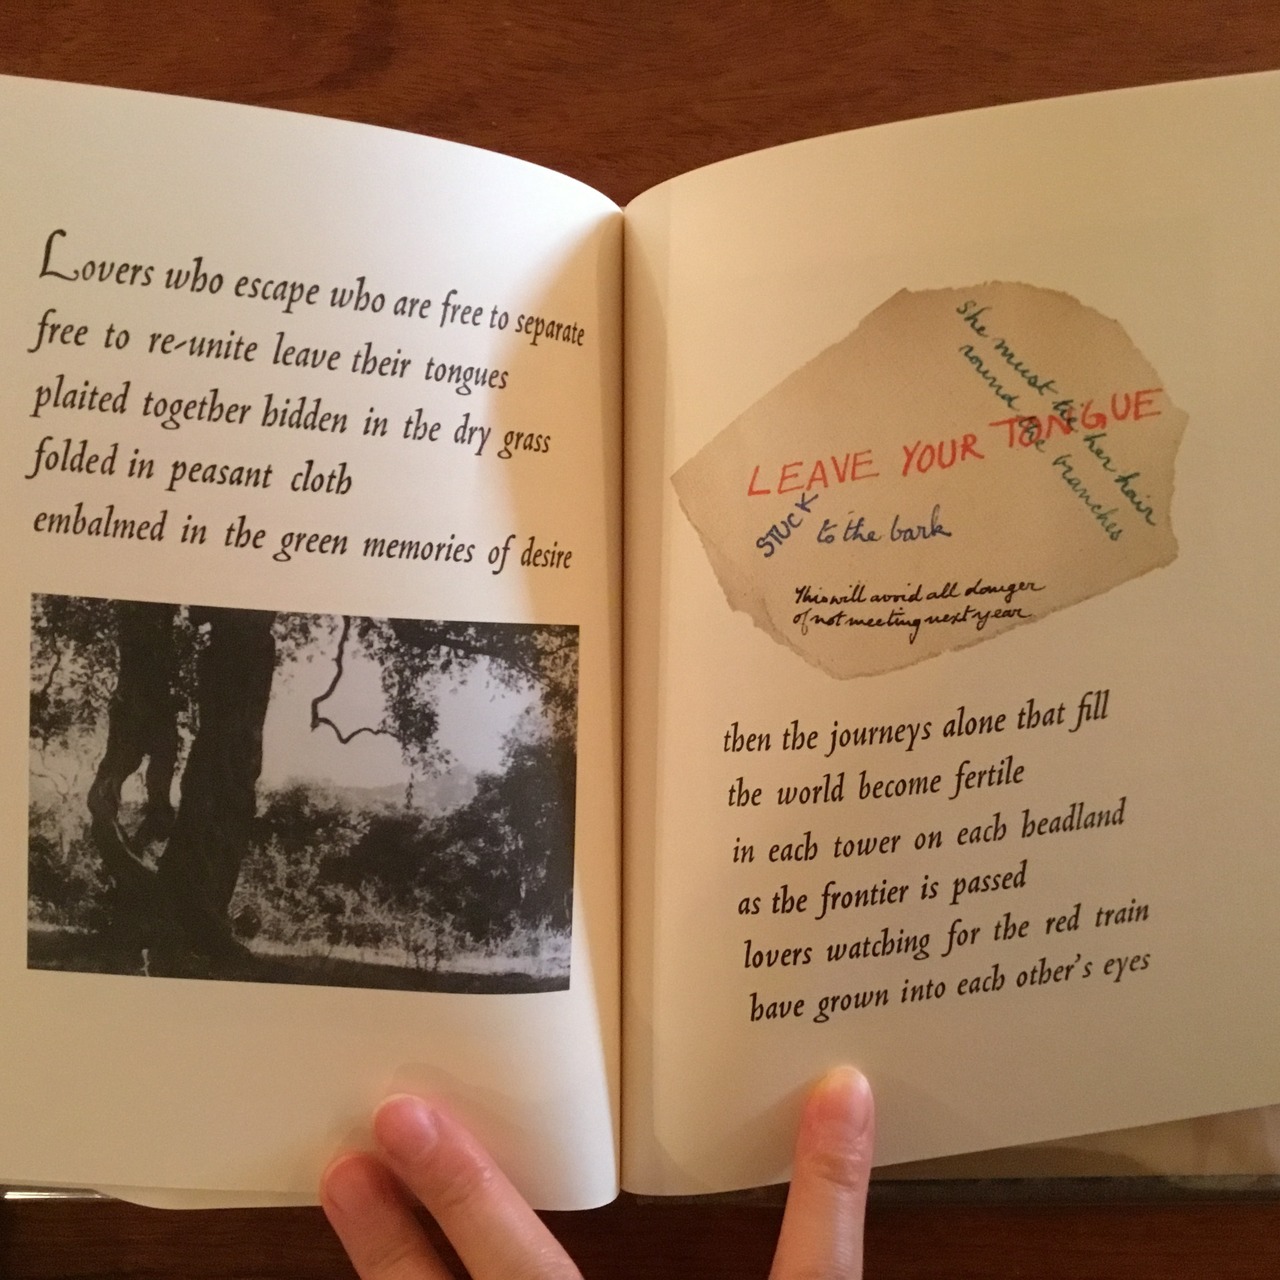 Lovers who escape who are free to separate
free to re-unite leave their tongues
plaited together hidden in the dry grass
folded in peasant cloth
embalmed in the green memories of desire
she must tie her hair
round the branches
LEAVE YOUR TONGUE
STUCK to the bark
This will avoid all danger
of not meeting next year
then the journeys alone that fill
the world become fertile
in each tower on each headland
as the frontier is passed
lovers watching for the red train
have grown into each other's eyes